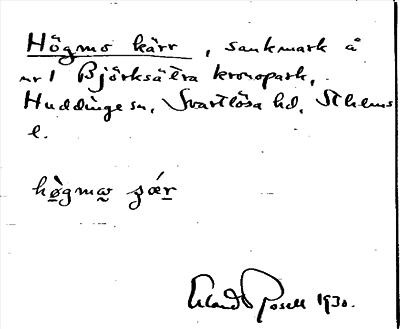 Högmo kärr, sankmark å
nr 1 Björksätra kronopark,
Huddinge sn, Svartlösa hd, Sthlms
l.
hø̀gmaw̲ ɕǽr̲
Erland Rosell 1930.